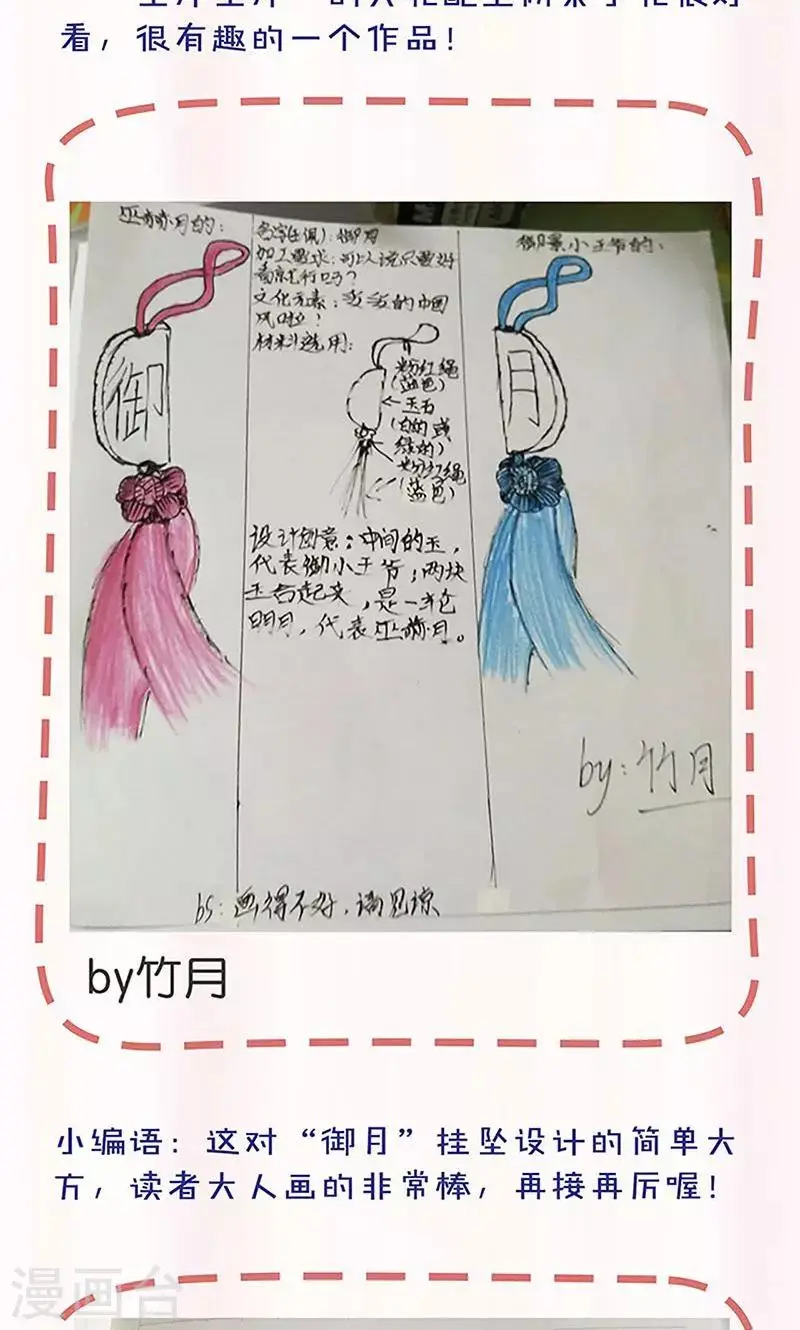 看，很有趣的一个作品！
巫萌月的：
名字(玉佩)：御月
加工要求：可以说只要好
看就行吗？
文化元素：妥妥的中国
风啦！
材料选用：
粉红绳
(蓝色)
玉石
(白的或
绿的)
粉红绳
(蓝色)
设计创意：中间的玉，
代表御小王爷；两块
玉合起来，是一轮
明月，代表巫萌月。
御景小王爷的：
御
月
by：竹月
bs：画得不好，请见谅
by竹月
小编语：这对“御月”挂坠设计的简单大
方，读者大人画的非常棒，再接再厉喔！
漫画台